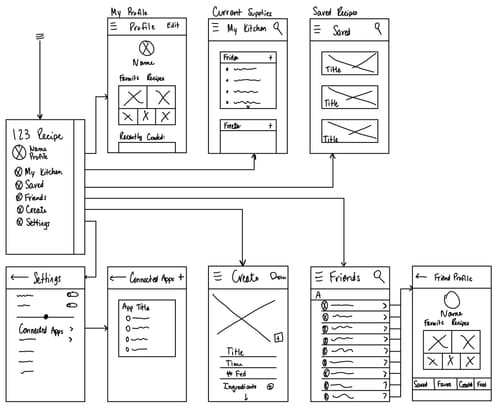 My Profile
Profile Edit
Name
Favorite Recipes
Recently Cooked:
Current Supplies
My Kitchen
Fridge +
Freezer +
Saved Recipes
Saved
Title
Title
Title
123 Recipe
Name
Profile
My Kitchen
Saved
Friends
Create
Settings
Settings
Connected Apps >
Connected Apps +
App Title
Create Done
Title
Time
# Fed
Ingredients
Friends
A
Friend Profile
Name
Favorite Recipes
Saved Faves Cooked